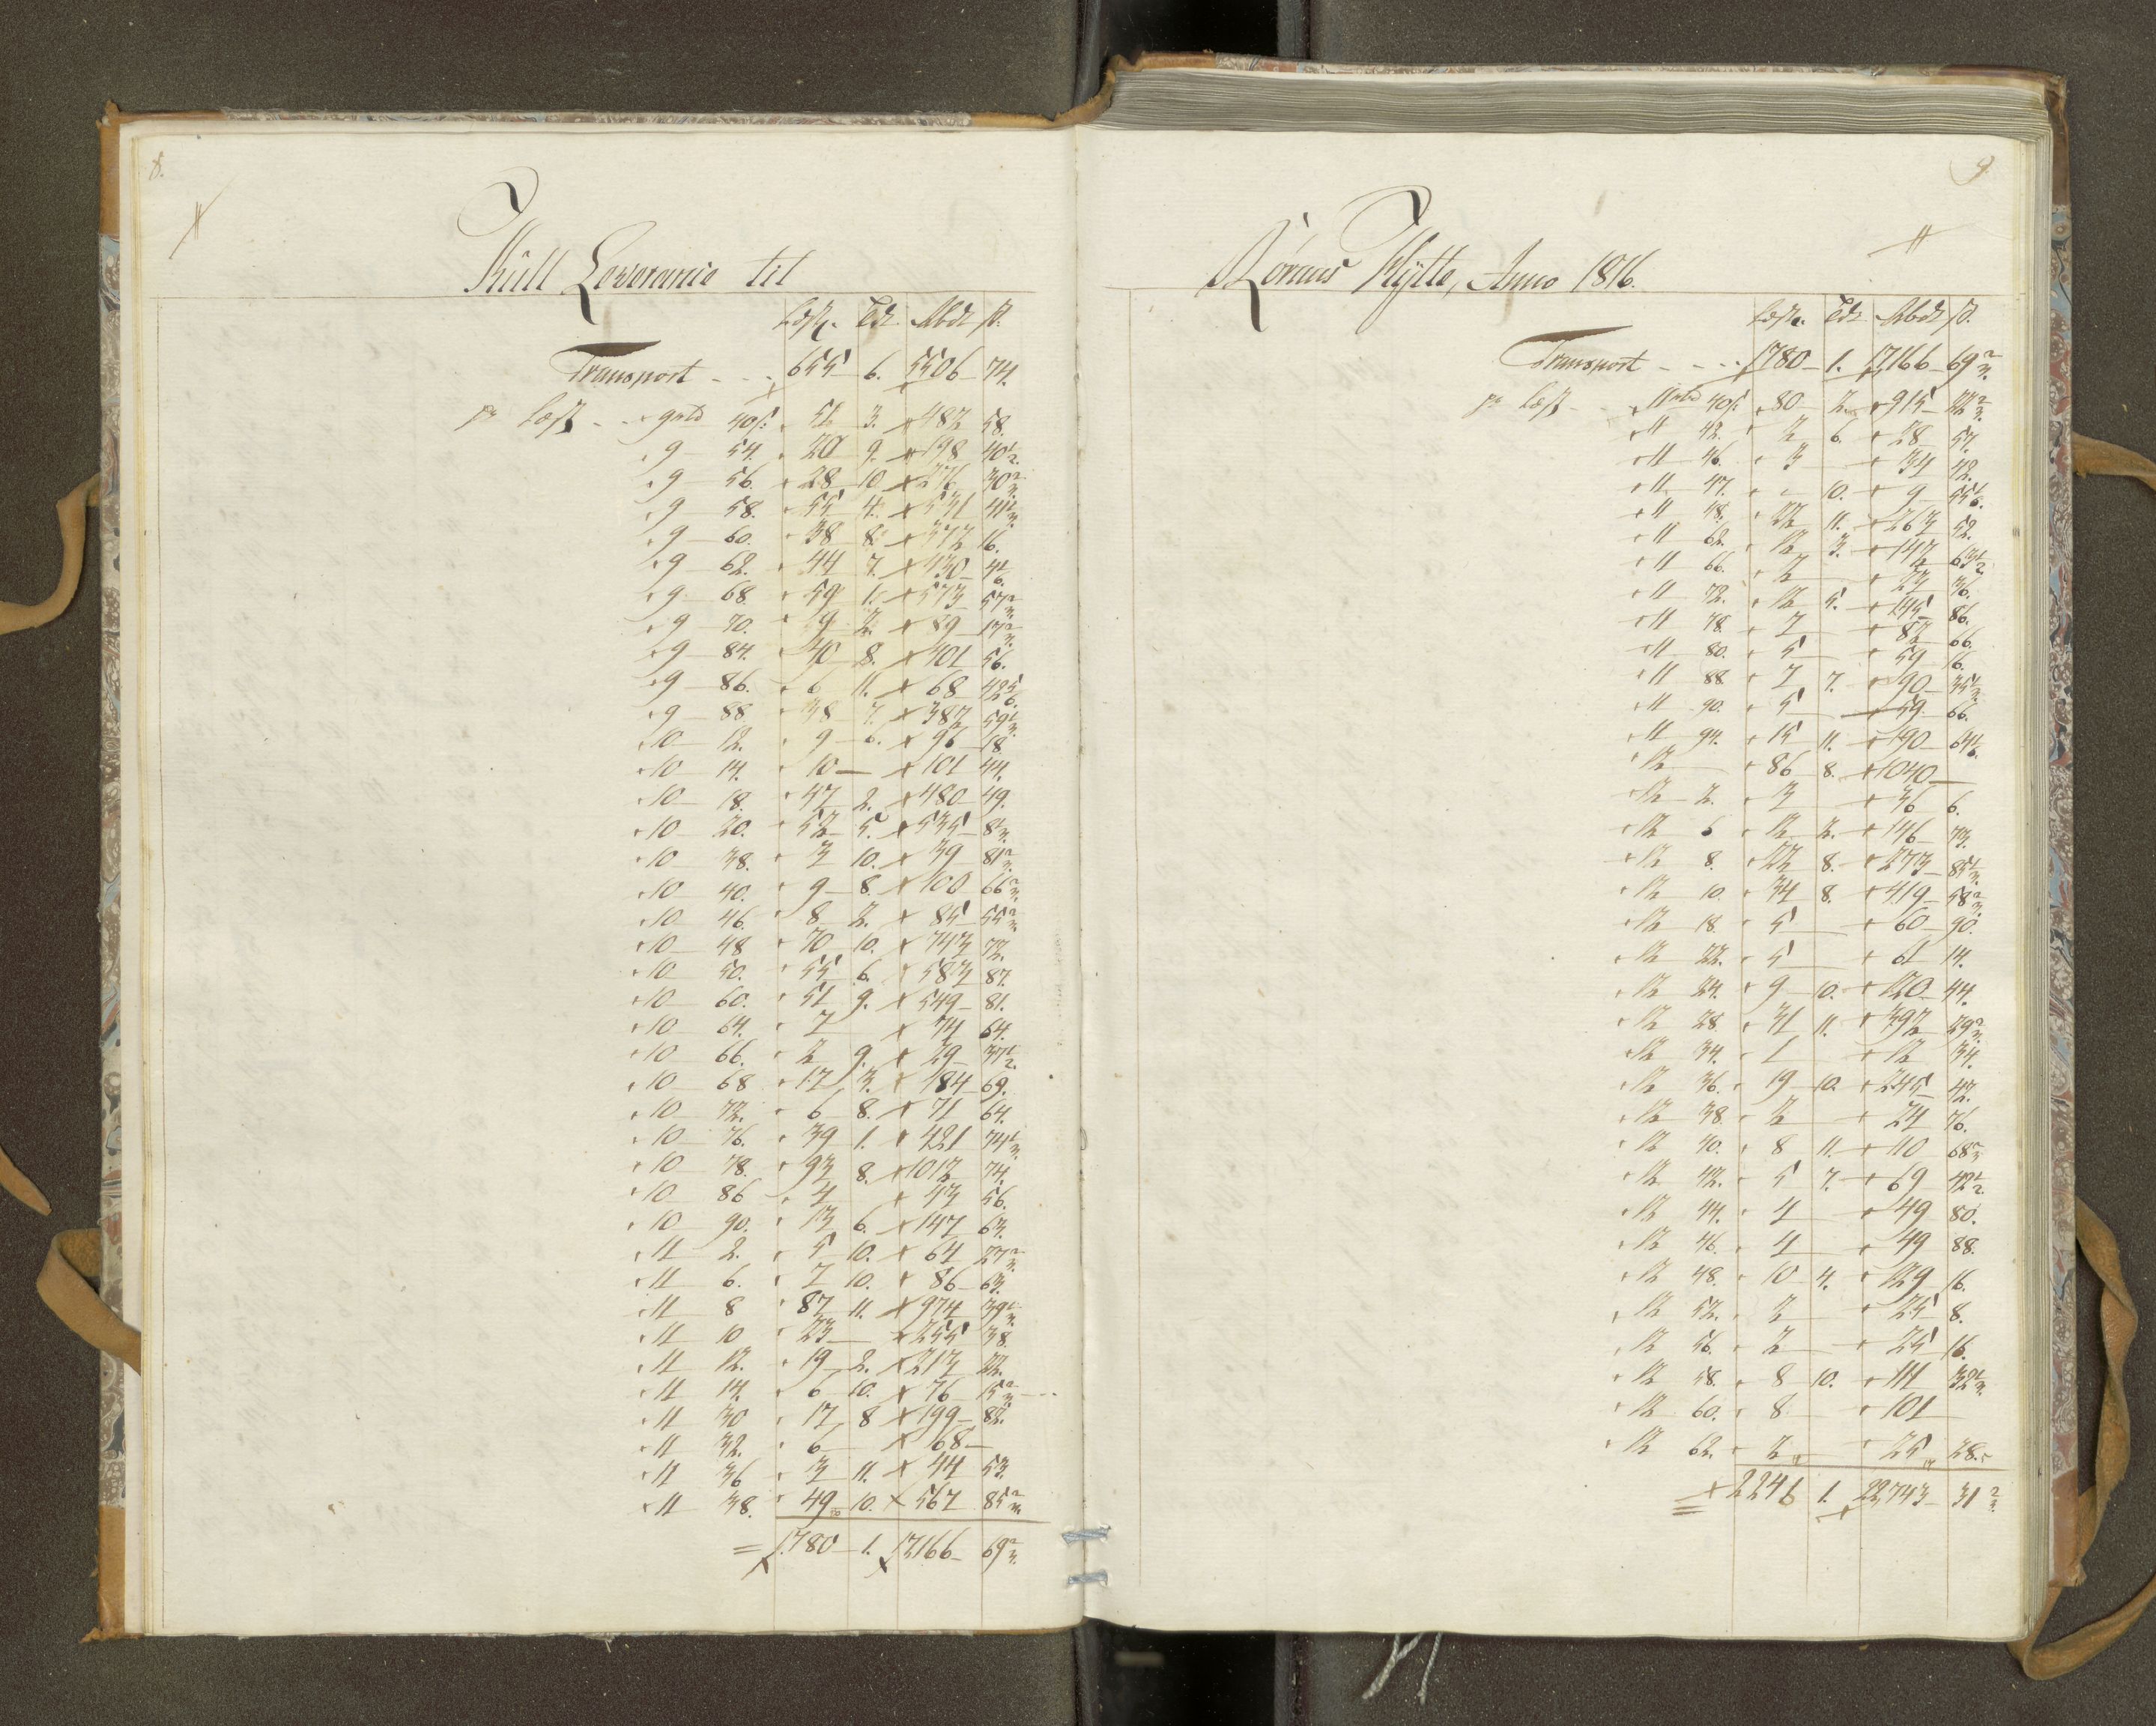 8.
Kull Leverance til
Læst. Tdr Rbdr s.
Transport - - - 655 6. 5506 74.
pr Læst - - 9 rbd 40 s: 51 3. 482 58.
9 54. 20 9. 198 40 1/2.
9 56. 28 10. 276 30 2/3.
9 58. 55 4. 531 41 1/3.
9 60. 38 8. 372 16.
9 62. 44 7. 430 4 1/6.
9 68. 59 1. 573 57 2/3.
9 70. 9 2. 89 17 2/3.
9 84. 40 8. 401 56.
9 86. 6 11. 68 42 5/6.
9 88. 38 7. 382 59 1/3.
10 12. 9 6. 96 18.
10 14. 10 — 101 44.
10 18. 47 2. 480 49.
10 20. 52 5. 535 8 1/3.
10 38. 3 10. 39 81 2/3.
10 40. 9 8. 100 66 2/3.
10 46. 8 2. 85 55 2/3.
10 48 70 10. 743 72.
10 50. 55 6. 583 87.
10 60. 51 9. 549 81.
10 64. 7 74 64.
10 66. 2 9. 29 37 1/2.
10 68 17 3. 184 69.
10 72. 6 8. 71 64.
10 76. 39 1. 421 74 1/3.
10 78. 93 8. 1012 74.
10 86 4 43 56.
10 90. 13 6. 147 63.
11 2. 5 10. 64 27 2/3.
11 6. 7 10. 86 63.
11 8 87 11. 974 39 1/3.
11 10 23 — 255 38.
11 12. 19 2. 213 22.
11 14. 6 10. 76 15 2/3.
11 30 17 8 199 82.
11 32. 6 68
11 36 3 11. 44 53.
11 38. 49 10. 567 85 2/3.
= 1780 1. 17166 69 2/3.
9
Röraas Hÿtte, Anno 1816.
Læst. Tdr Rbdr s.
Transport - - - 1780 1. 17166 69 2/3.
pr Læst - - 11 rbd 40 s: 80 2. 915 22 2/3.
11 42. 2 6. 28 57.
11 46. 3 34 42.
11 47. - 10. 9 55 1/6.
11 48. 22 11. 263 52.
11 62. 12 3. 142 63 1/2.
11 66. 2 23 36.
11 72. 12 5. 145 86.
11 78. 7 82 66.
11 80. 5 59 16.
11 88 7 7. 90 35 1/3.
11 90. 5 59 66.
11 94. 15 11. 190 64 1/6.
12 — 86 8. 1040 —
12 2. 3 36 6.
12 6 12 2. 146 73.
12 8. 22 8. 273 85 1/3.
12 10. 34 8. 419 58 2/3.
12 18. 5 60 90.
12 22. 5 61 14.
12 24. 9 10. 120 44.
12 28. 31 11. 392 29 2/3.
12 34. 1 12 34.
12 36. 19 10. 245 42.
12 38. 2 24 76.
12 40. 8 11. 110 68 2/3
12 42. 5 7. 69 42 1/2.
12 44. 4 49 80.
12 46. 4 49 88.
12 48. 10 4. 129 16.
12 52. 2 25 8.
12 56. 2 25 16.
12 58. 8 10. 111 32 1/3.
12 60. 8 101
12 62. 2 25 28.
= 2246 1. 22743 31 2/3.